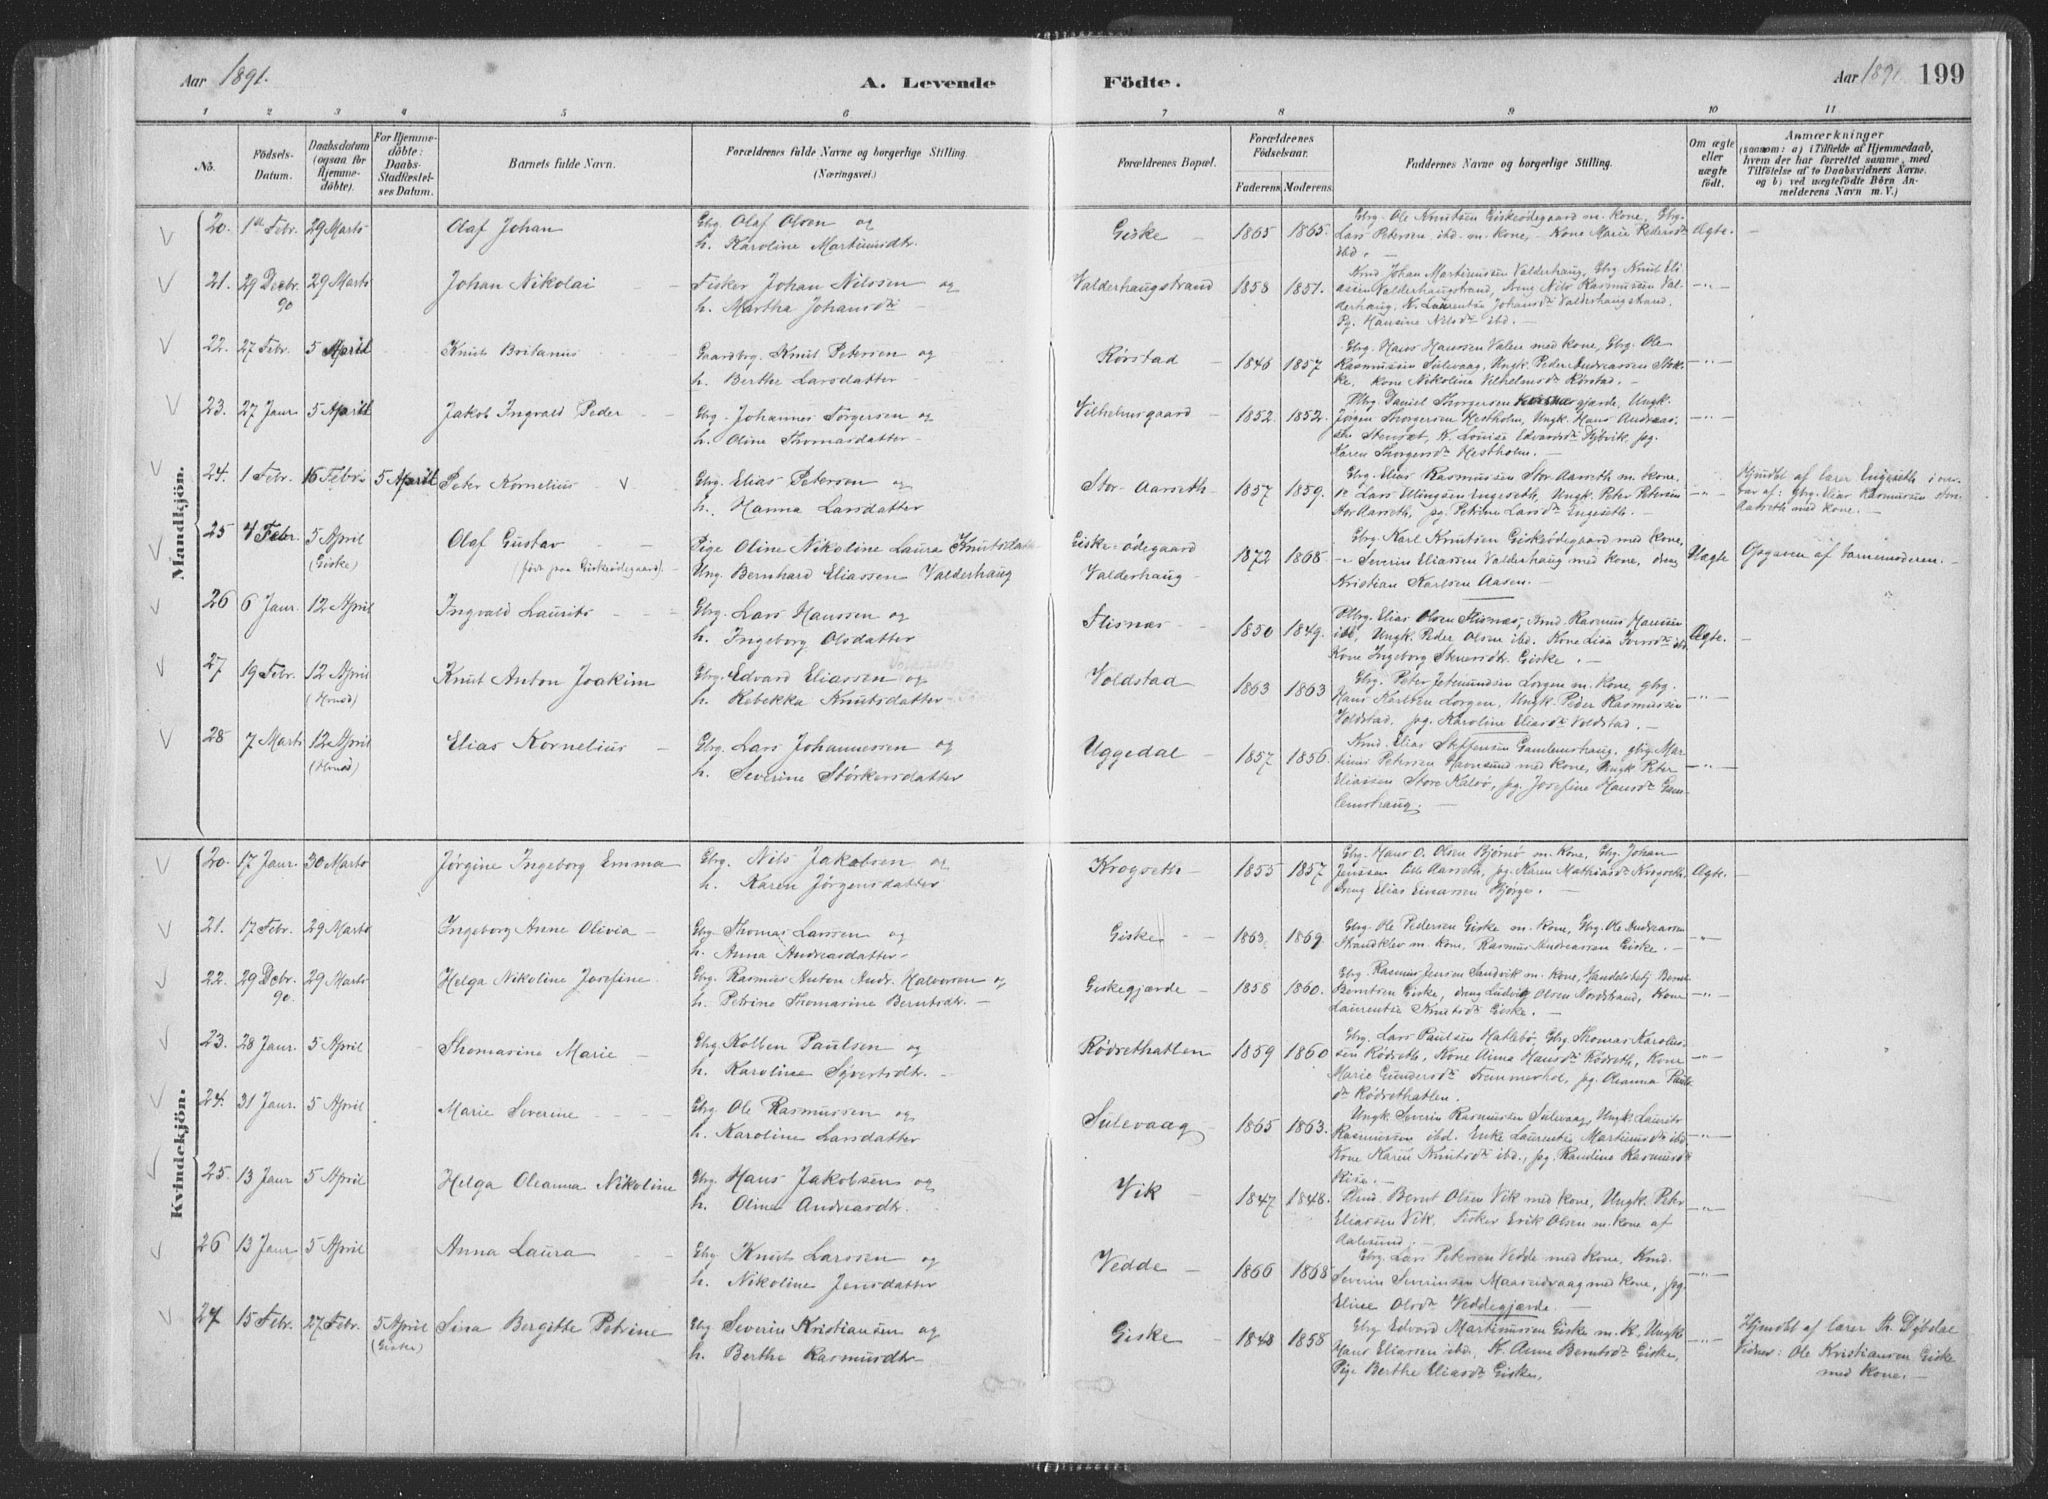 Aar 1891.
A. Levende
Födte.
Aar 1891 199
1 2 3 4 5 6 7 8 9 10 11
No.
Födsels-Datum.
Daabsdatum (ogsaa for Hjemme-döbte).
For Hjemme-döbte: Daabs-Stadfæstel-ses Datum.
Barnets fulde Navn.
Forældrenes fulde Navne og borgerlige Stilling. (Næringsvei.)
Forældrenes Bopæl.
Forældrenes Födselsaar.
Faderens. Moderens.
Faddernes Navne og borgerlige Stilling.
Om ægte eller uægte födt.
Anmærkninger
(saasom: a) i Tilfælde af Hjemmedaab, hvem der har forrettet samme, med Tilföielse af to Daabsvidners Navne, og b) ved uægtefödte Börn An-melderens Navn m. V.)
Mandkjön.
20. 1ste Febr. 29 Marts Olaf Johan Gbrg. Olaf Olsen og
h. Karoline Martinusdtr. Giske 1865 1865. Gbrg. Ole Knutsen Giskeødegaard m. kone, Gbrg.
Lars Petersen ibd. m. kone, Kone Marie Pedersdtr
ibd. Ægte. –
21. 29 Decbr. 90 29 Marts Johan Nikolai Fisker Johan Nilssen og
h. Martha Johansdtr Valderhaugstrand 1858 1851. Kmd. Johan Martinusen Valderhaug, Gbrg Knut Eli-
assen Valderhaugstrand, dreng Nils Rasmussen Val-
derhaug, K. Laurentse Johansdtr Valderhaugstrand.
Pg. Hansine Nilsdtr ibd. –
22. 27 Febr. 5 April Knut Britanus Gaardbrg. Knut Petersen og
h. Berthe Larsdatter Rørstad 1846 1857 Gbrg. Hans Hanssen Valen med kone, Gbrg. Ole
Rasmussen Sulevaag, Ungk. Peder Andreassen Stok-
ke, kone Nikolina Vilhelmsdtr Rørstad. –
23. 27 Janr 5 April Jakob Ingvald Peder Gbrg. Johannes Torgersen og
h. Oline Thomasdatter Vilhelmsgaard 1852 1852. Daniel Thorgersen gjærde, Ungk.
Jørgen Thorgersen Hestholm, Ungk. Hans Andreas-
sen Stenset, K. Louise Edvardsdtr Dybvik, pg.
Karen Thorgersdtr Hestholm. –
24. 1 Febr. 16 Febr. 5 April Peter Kornelius Gbrg. Elias Petersen og
h. Hanna Larsdatter Stor-Aarseth 1857 1859. Gbrg. Elias Rasmussen Stor Aarseth m. kone.
Lars Ellingsen Engeseth, Ungk. Peter Petersen
Stor Aarseth, pg. Petrine Larsdtr Engeseth. – Hjmdbt af lærer Engeseth i over-
vær af: gbrg. Elias Rasmussen Stor-
Aarseth med kone. –
25 4 Febr. 5 April (Giske) Olaf Gustav (født paa Giskeødegaard). Pige Oline Nikoline Laura Knutsdatter
Ung. Bernhard Eliassen Valderhaug Giske-ødegaard
Valderhaug 1872 1868 Gbrg. Karl Knutsen Giskeødegaard med kone,
Severin Eliassen Valderhaug med kone, dreng
Kristian Karlsen Aasen. Uægte Opgaven af barnemoderen. –
26 6 Janr. 12 April Ingvald Laurits Gbrg. Lars Hanssen og
h. Ingeborg Olsdatter Flisnæs 1850 1849. Elias Olsen Flisnæs, Rasmus Hanssen
ibd., Ungk. Peder Olsen ibd. Kone Lisa Iversdtr ibd.
Kone Ingeborg Giske. – Ægte. –
27 19 Febr. 12 April Knut Anton Joakim Gbrg. Edvard Eliassen og
h. Rebekka Knutsdatter Voldstad 1863 1863 Gbrg. Peter Jetmundsen Lorgen m. kone, gbrg.
Hans Karlsen Lorgen, Ungk. Peder Rasmussen
Voldstad, pg. Karoline Eliasdtr Voldstad. –
28 7 Marts 12 April Elias Kornelius Gbrg. Lars Johannessen og
h. Severine Størkersdatter Uggedal 1857 1856. Kmd. Elias Steffensen Gamlemshaug, gbrg. Mar-
tinus Petersen Havnsund med kone, Ungk Peter
Eliassen Store Kalvø, pg. Josefine Hansdtr Gam-
lemshaug. –
Kvindekjön.
20. 17 Janr. 30 Marts Jørgine Ingeborg Emma Gbrg. Nils Jakobsen og
h. Karen Jørgensdatter Krogseth 1855 1857 Gbrg. Hans O. Olsen Bjørnø m. kone, Gbrg. Johan
Jenssen Aarseth, pg. Karen Mathiasdtr Krogseth,
dreng Elias Einarssen Hjørge. Ægte. –
21. 17 Febr. 29 Marts Ingeborg Anne Olivia Gbrg. Thomas Larssen og
h. Anna Andreasdatter Giske 1863. 1869 Gbrg. Ole Pedersen Giske m. kone, Gbrg. Ole Andreassen
Strandklev m. kone, Rasmus Andreassen Giske. –
22. 29 Decbr. 90. 29 Marts Helga Nikoline Josefine Gbrg. Rasmus Anton Andr. Halvorsen og
h. Petrine Thomasine Berntsdtr. Giskegjærde 1858 1860. Gbrg. Rasmus Jensen Sandvik m. kone, Handelsbetj. Bernt
Berntsen Giske, dreng Ludvig Olsen Nordstrand, Kone
Laurentse Knutsdtr Giske. –
23. 28 Janr. 5 April Thomasine Marie Gbrg Kolben Paulsen og
h. Karoline Sivertsdtr. Rødsethatlen 1859 1860 Gbrg. Lars Paulsen Hatlebø, Gbrg Thomas Karolus-
sen Rødseth, Kone Anna Hansdtr Rødseth, Kone
Marie Gundersdtr Fremmerhol, pg. Oleanna Pauls-
dtr Rødsethatlen.
24. 31 Janr. 5 April Marie Severine Gbrg Ole Rasmussen og
h. Karoline Larsdatter Sulevaag 1865 1863. Ungk. Severin Rasmussen Sulevaag, Ungk. Laurits
Rasmussen ibd. Enke Laurentse Martinusdtr ibd.
Kone Karen Knutsdtr ibd., pg. Randine Rasmusdtr
Rise. –
25. 13 Janr 5 April Helga Oleanna Nikoline Gbrg. Hans Jakobsen og
h. Oline Andreasdtr. Vik 1847 1848. Bernt Olsen Vik med kone, Ungk. Peter
Eliassen Vik. Fisker Erik Olsen m. kone af
Aalesund. –
26 13 Janr 5 April Anna Laura Gbrg Knut Larssen og
h. Nikoline Jensdatter Vedde 1866 1868 Gbrg. Lars Petersen Vedde med kone, Kmd.
Severin Severinsen Maaseidvaag med kone, pg.
Eline Olsdtr Veddegjærde. –
27 15 Febr. 27 Febr. 5 April (Giske) Sina Bergitte Petrine Gbrg Severin Kristiansen og
h. Berthe Rasmusdtr Giske 1848 1858 Gbrg Edvard Martinussen Giske m. K., Ungk
Hans Eliassen ibd., K. Anne Berntsdtr Giske,
Pige Berthe Eliasdtr Giske. Hjmdbt af lærer Th. Dybdal
Vidner: Ole Kristiansen Giske
med kone. –